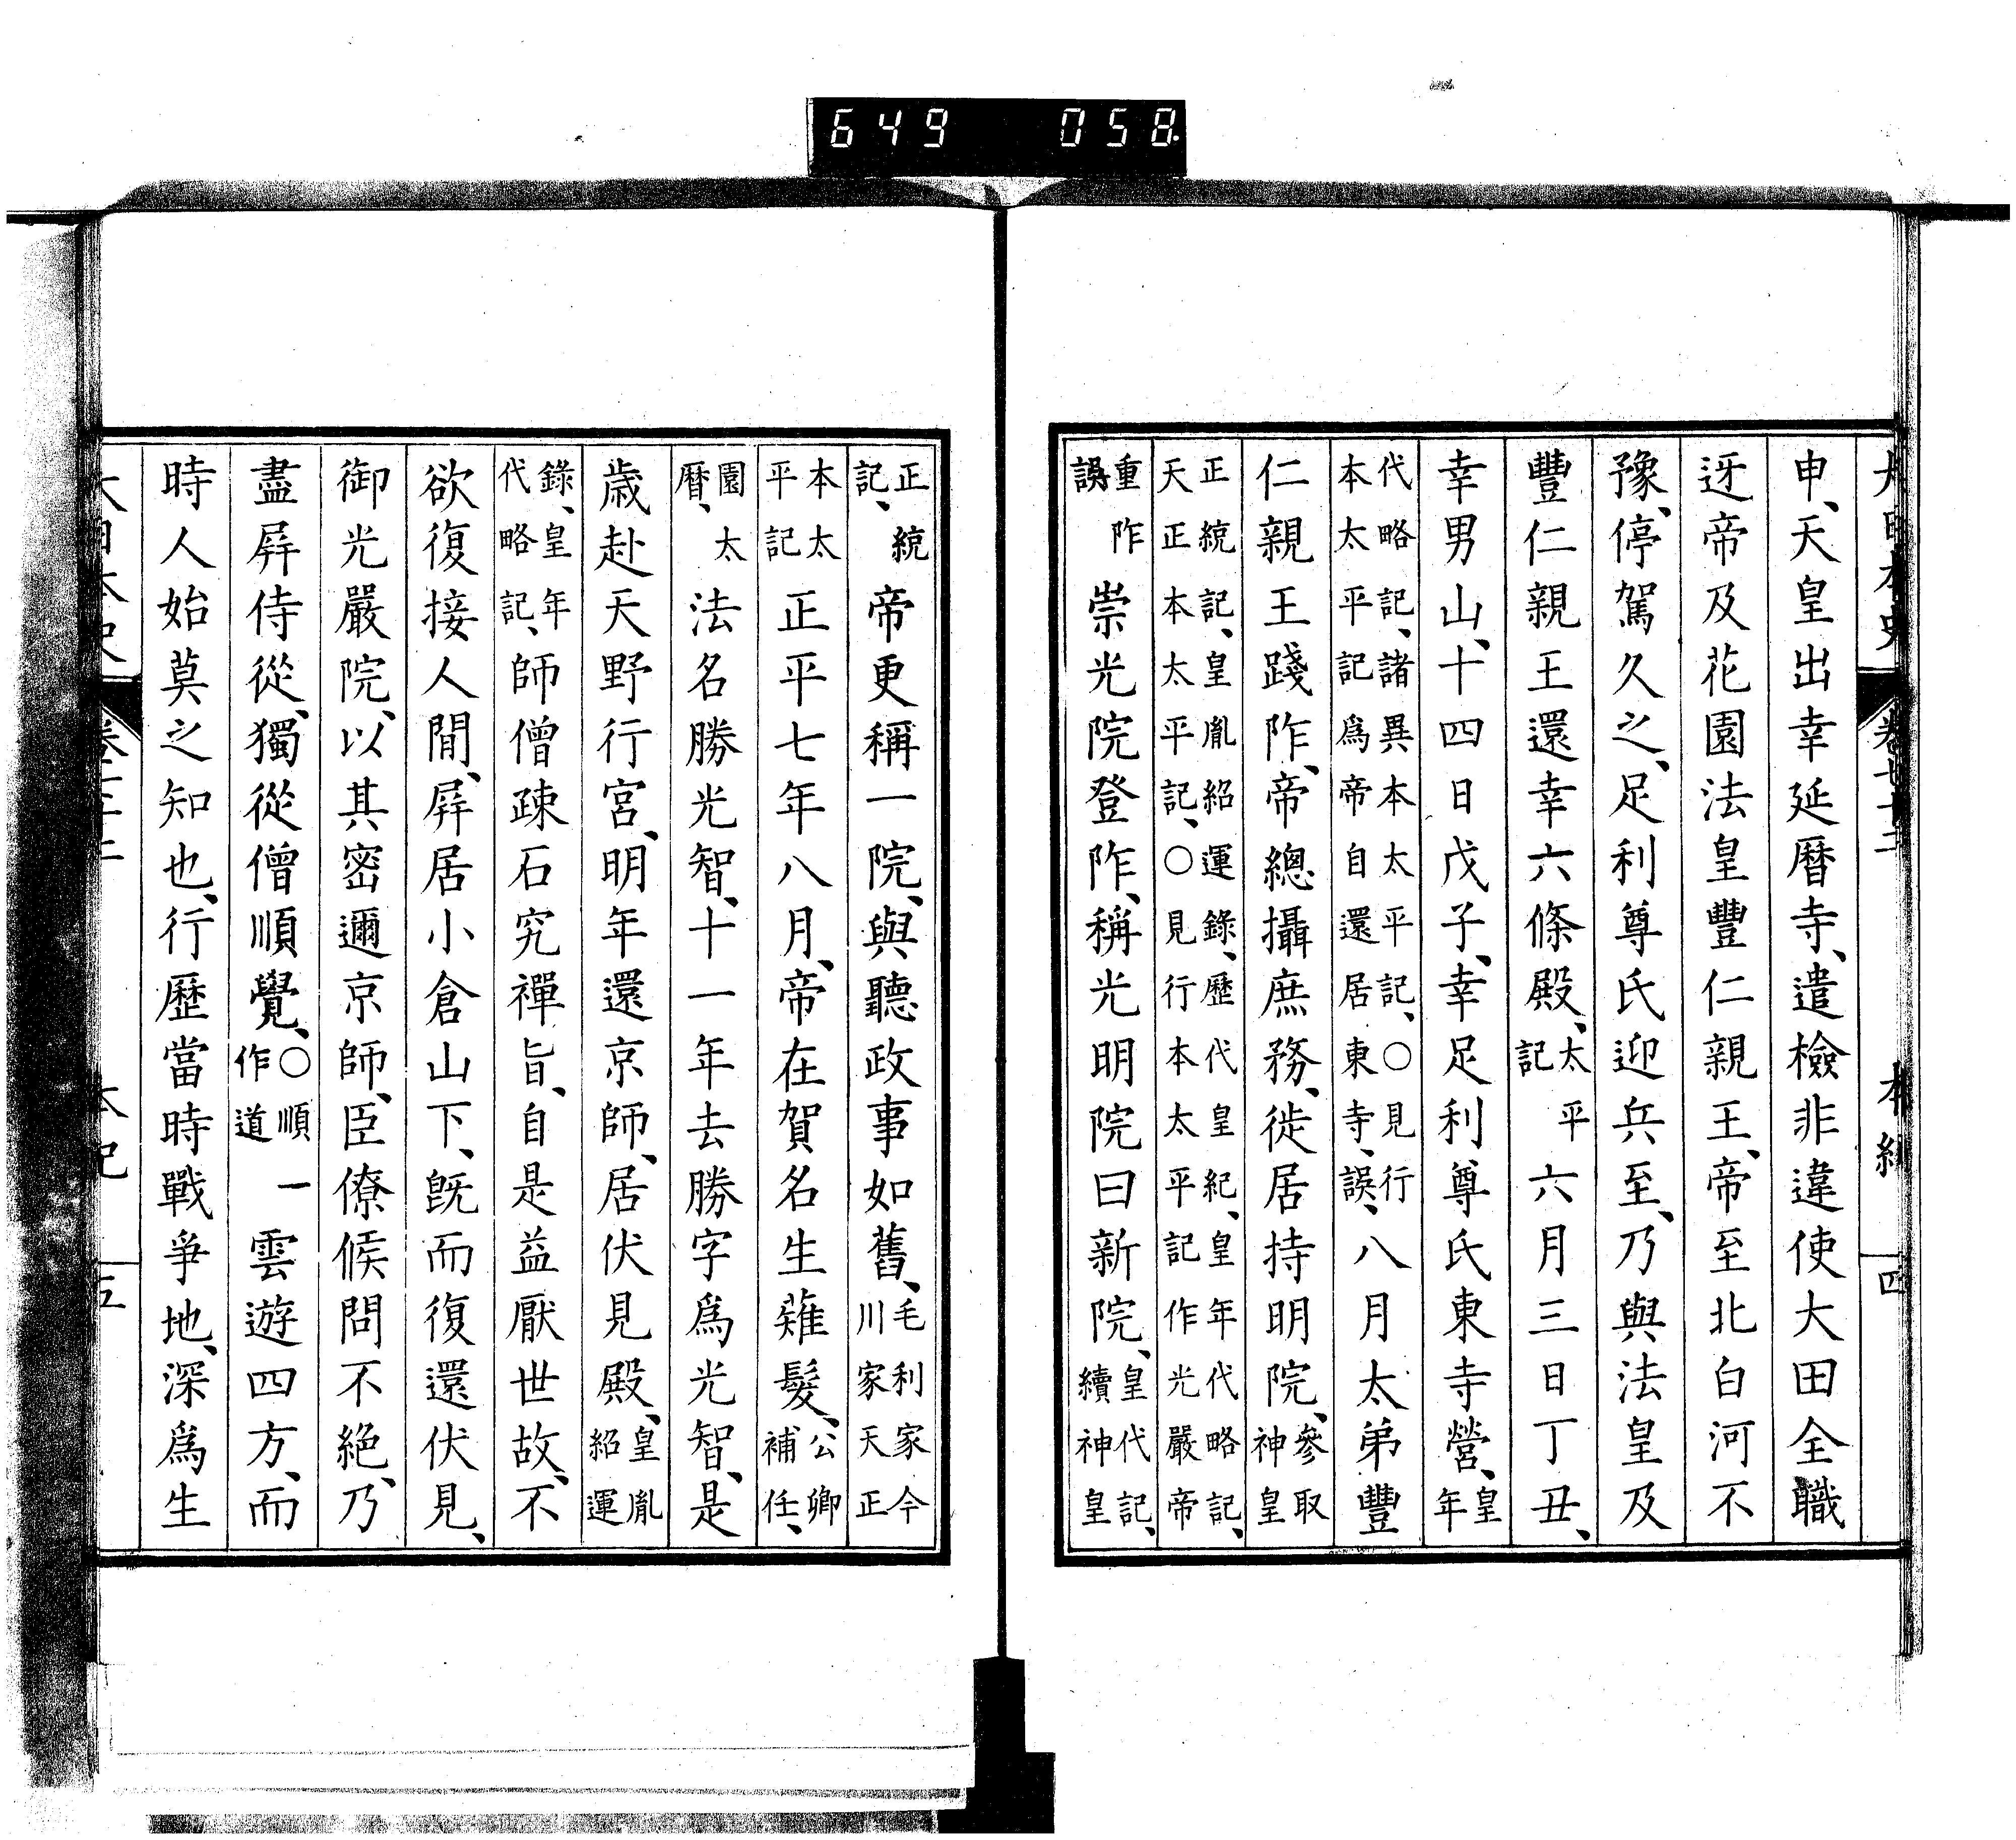 649 058
大日本史 卷七十二 本紀 四
申、天皇出幸延曆寺、遣檢非違使大田全職
迓帝及花園法皇豐仁親王、帝至北白河不
豫、停駕久之、足利尊氏迎兵至、乃與法皇及
豐仁親王還幸六條殿、太平記六月三日丁丑、
幸男山、十四日戊子、幸足利尊氏東寺營、皇年
代略記、諸異本太平記、〇見行本太平記爲帝自還居東寺、誤、八月太弟豐
仁親王踐阼、帝總攝庶務、徙居持明院、參取神皇
正統記、皇胤紹運錄、歷代皇紀、皇年代略記、天正本太平記、〇見行本太平記作光嚴帝
重阼誤崇光院登阼、稱光明院曰新院、皇代記、續神皇
正統記、帝更稱一院、與聽政事如舊、毛利家今川家天正
本太平記正平七年八月、帝在賀名生薙髮、公卿補任、
園太曆、法名勝光智、十一年去勝字爲光智、是
歲赴天野行宮、明年還京師、居伏見殿、皇胤紹運
錄、皇年代略記、師僧疎石究禪旨、自是益厭世故、不
欲復接人間、屏居小倉山下、旣而復還伏見、
御光嚴院、以其密邇京師、臣僚候問不絕、乃
盡屏侍從、獨從僧順覺、〇順一作道雲遊四方、而
時人始莫之知也、行歷當時戰爭地、深爲生